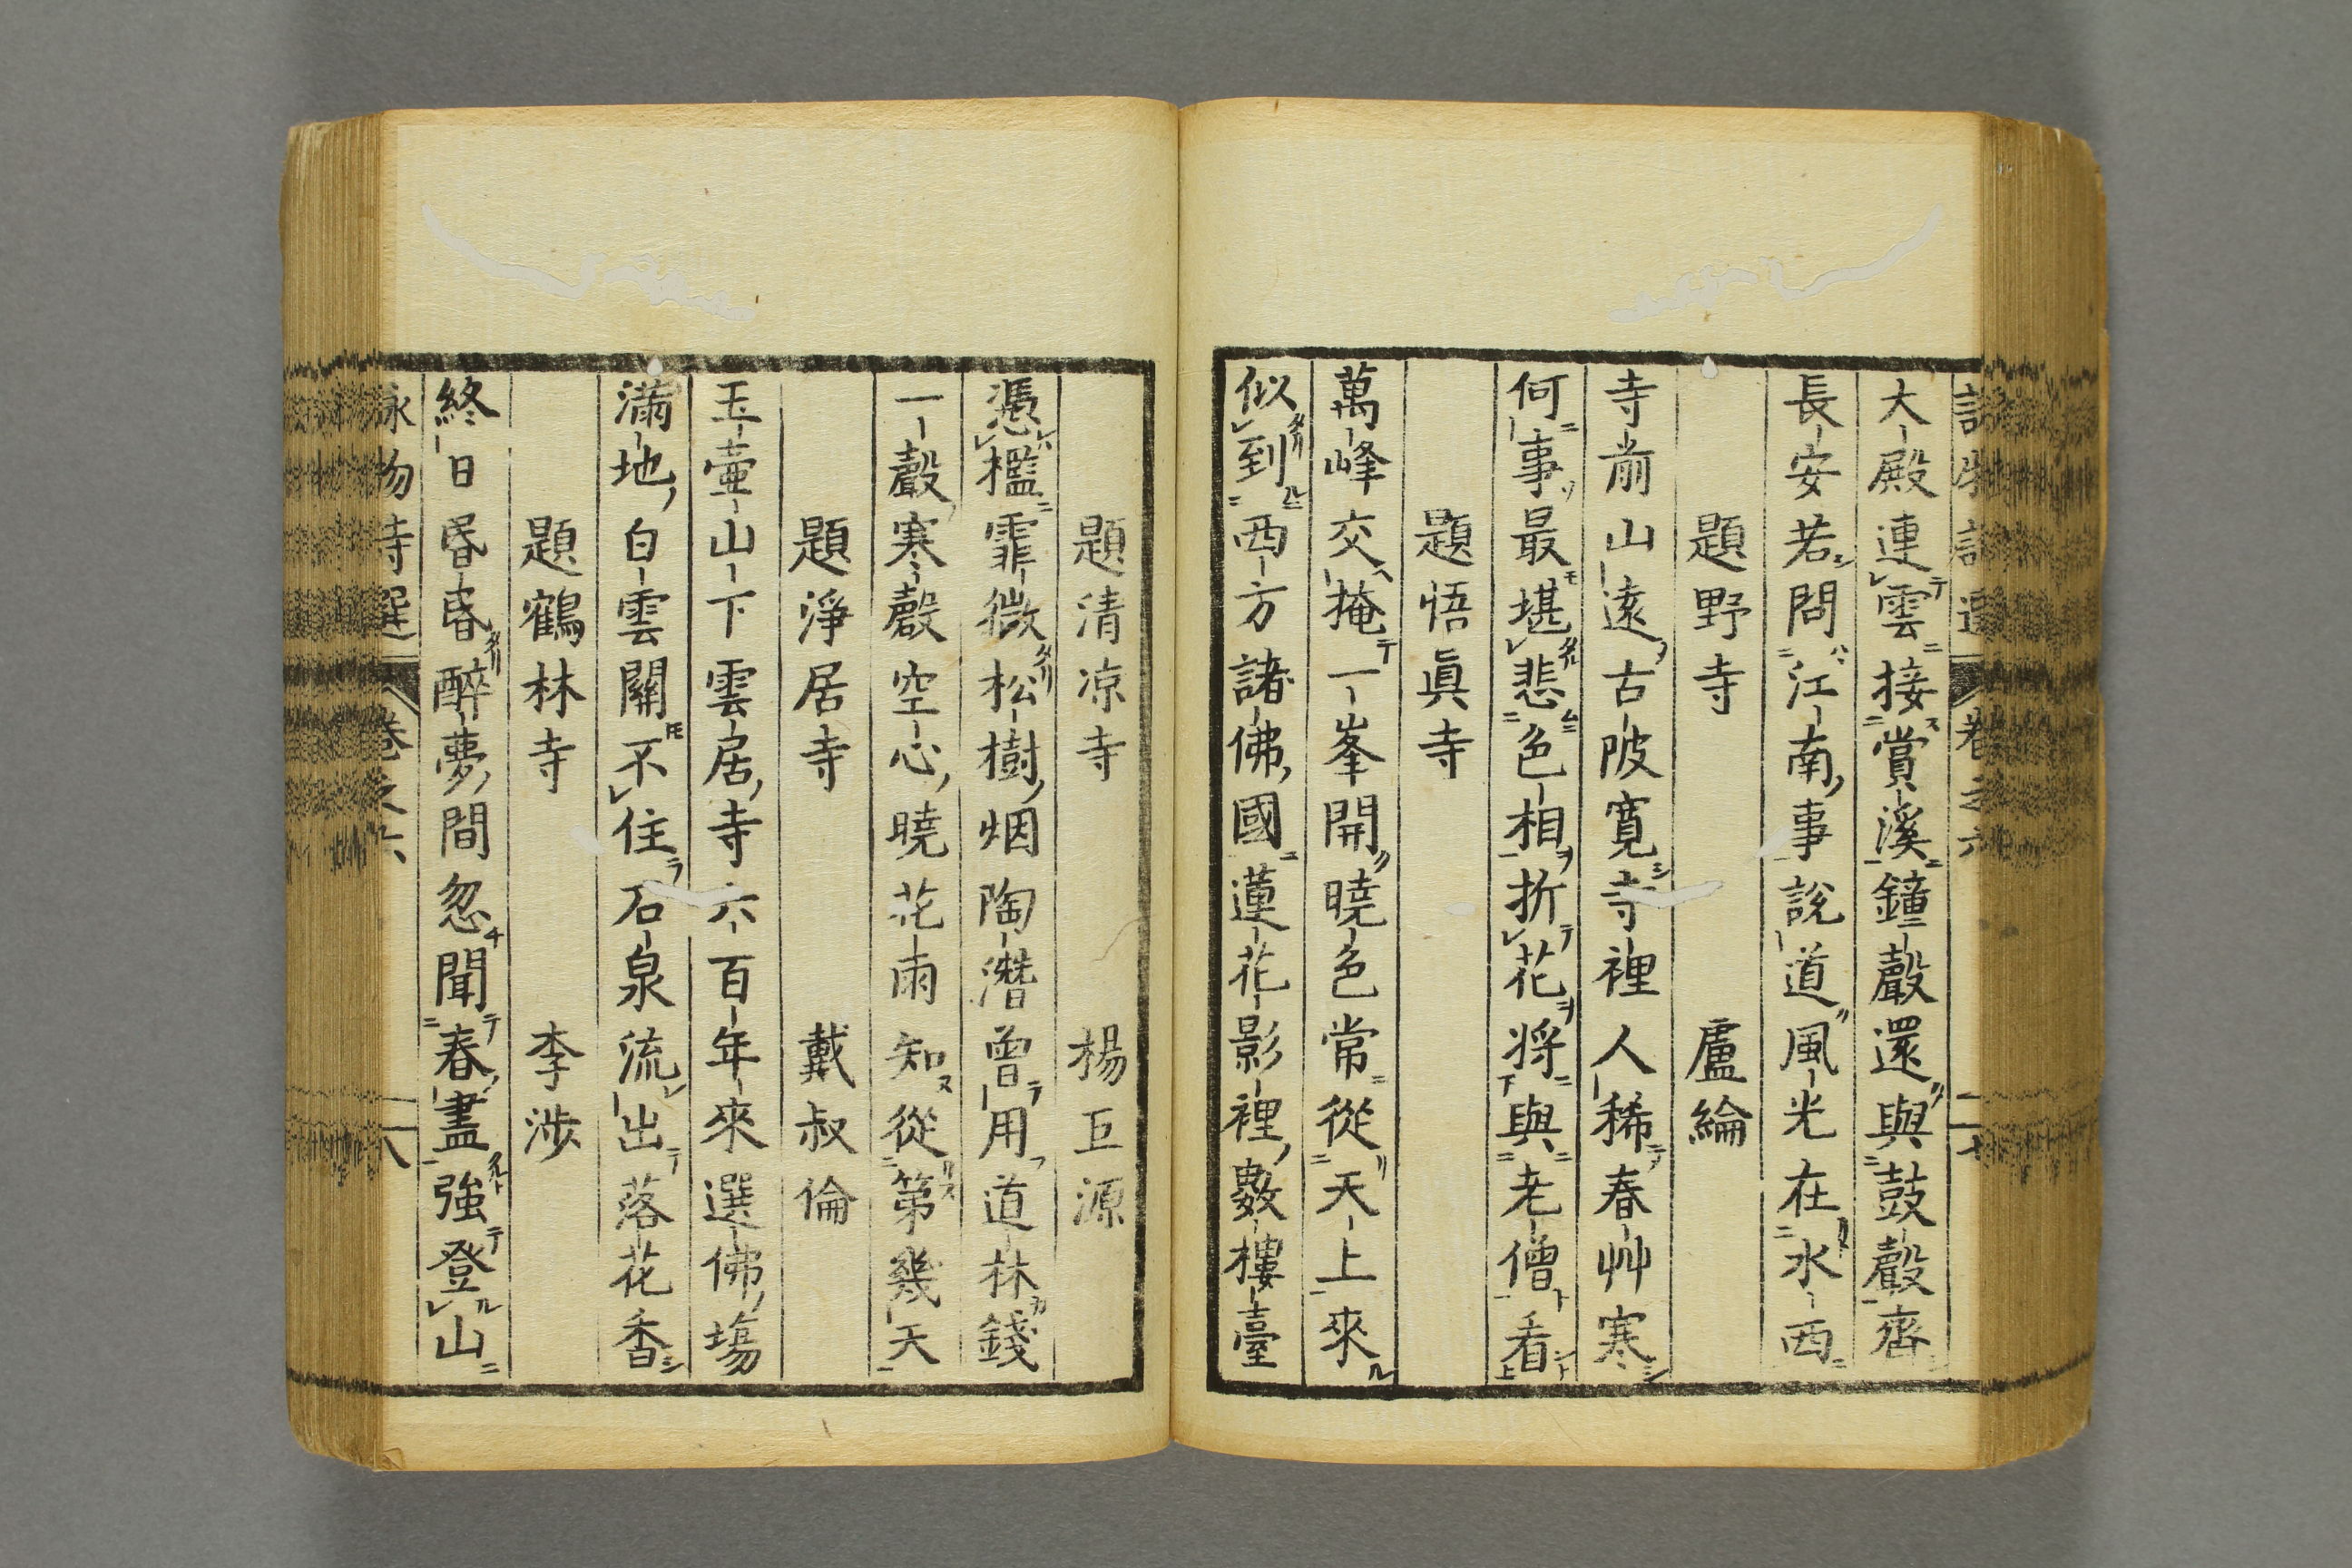 大殿連雲接賞溪鐘聲還與鼓聲齊
長安若問江南事說道風光在水西
題野寺 盧綸
寺前山遠古陂寬寺裡人稀春艸寒
何事最堪悲色相折花將與老僧看
題悟眞寺
萬峰交掩一峯開曉色常從天上來
似到西方諸佛國蓮花影裡數樓臺
題清凉寺 楊巨源
憑檻霏微松樹烟陶潛曾用道林錢
一聲寒磬空心曉花雨知從第幾天
題淨居寺 戴叔倫
玉壷山下雲居寺六百年來選佛場
滿地白雲關不住石泉流出落花香
題鶴林寺 李涉
終日昏昏醉夢間忽聞春盡強登山
詠物詩選 卷之六 二十八